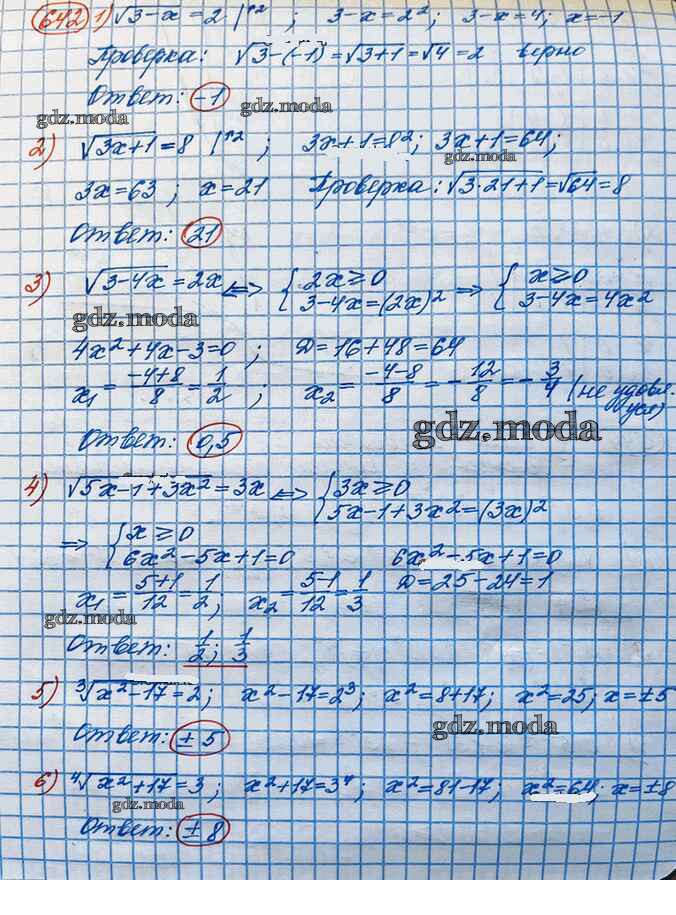 642 1) √3-x = 2 |↑2 ; 3-x=2²; 3-x=4; x=-1
Проверка: √3-(-1) = √3+1 = √4 = 2 верно
Ответ: -1
gdz.moda gdz.moda
2) √3x+1 = 8 |↑2 ; 3x+1=8²; 3x+1=64;
gdz.moda
3x=63 ; x=21 Проверка: √3·21+1 = √64 = 8
Ответ: 21
3) √3-4x = 2x ⇔ { 2x≥0 3-4x=(2x)² ⇒ { x≥0 3-4x=4x²
gdz.moda
4x²+4x-3=0 ; D=16+48=64
x₁ = (-4+8)/8 = 1/2 ; x₂ = (-4-8)/8 = -12/8 = -3/4 (не удовл. усл)
Ответ: 0,5
gdz.moda
4) √5x-1+3x² = 3x ⇔ { 3x≥0 5x-1+3x²=(3x)²
⇒ { x≥0 6x²-5x+1=0 6x²-5x+1=0
x₁ = (5+1)/12 = 1/2; x₂ = (5-1)/12 = 1/3 D=25-24=1
gdz.moda
Ответ: 1/2; 1/3
5) ³√x²-17 = 2; x²-17=2³; x²=8+17; x²=25; x=±5
gdz.moda
Ответ: ±5
6) ⁴√x²+17 = 3; x²+17=3⁴; x²=81-17; x²=64; x=±8
gdz.moda
Ответ: ±8